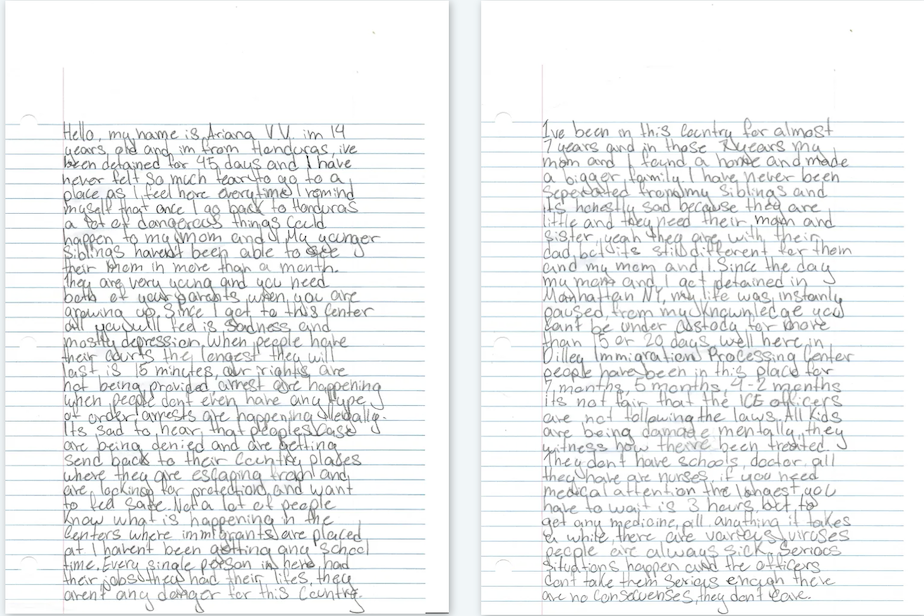 Hello, my name is Ariana V.V. im 14
years, old and im from Honduras, ive
been detained for 45 days and I have
never felt so much fear to go to a
place as I feel here everytime I remind
myself that once I go back to Honduras
a lot of dangerous things could
happen to my mom and I My younger
siblings haven't been able to see
their mom in more than a month.
They are very young and you need
both of your parents when you are
growing up. Since I got to this Center
all you will feel is sadness and
mostly depression. When people have
their courts the longest they will
last is 15 minutes, our rights are
not being provided, arrest are happening
when people dont even have any type
of order, arrests are happening illegally.
Its sad to hear that peoples case
are being denied and are getting
send back to their Country places
where they are escaping from and
are looking for protection, and want
to feel safe. Not a lot of people
know what is happening in the
centers where immigrants are placed
at I havent been getting any school
time. Every single person in here had
their jobs they had their lifes, they
arent any danger for this Country.
Ive been in this Country for almost
7 years and in those 7 years my
mom and I found a home and made
a bigger family I have never been
seperated from my siblings and
its honestly sad because they are
little and they need their mom and
sister, yeah they are with their
dad, but its still different for them
and my mom and I. Since the day
my mom and I got detained in
Manhattan NY, my life was instanly
paused, from my knownledge you
cant be under custody for more
than 15 or 20 days, well here in
Dilley Immigration Processing Center
people have been in this place for
7 months, 5 months, 4-2 months
its not fair that the ICE officers
are not following the laws. All kids
are being damage mentally, they
witness how been treated.
They don't have schools, doctor. all
they have are nurses, if you need
medical attention the longest you
have to wait is 3 hours, but to
get any medicine, pill, anything it takes
a while, there are various viruses
people are always sick, Serious
situations happen and the officers
dont take them serious enough there
are no consecuenses, they don't care.